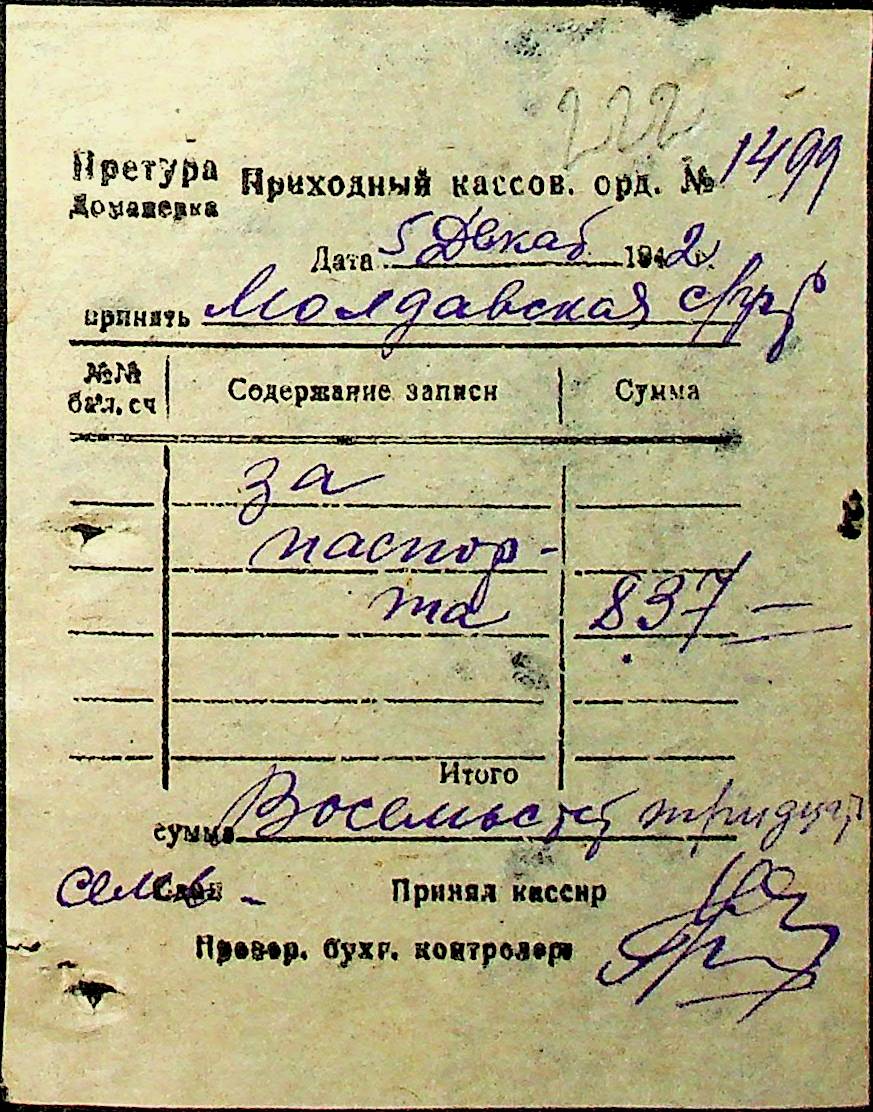 222
Претура Приходный кассов. орд. № 1499
Домашевка
Дата 5 Декаб 1942
принять Молдавская
№№ бал. сч Содержание записи Сумма
за
паспор-
та 837 —
Итого
сумма Восемьсот тридцать
семь - Сдал Принял кассир
Провер. бухг. контролер